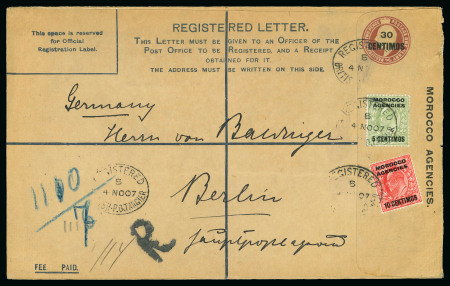 REGISTERED LETTER.
This space is reserved
for Official
Registration Label.
THIS LETTER MUST BE GIVEN TO AN OFFICER OF THE
POST OFFICE TO BE REGISTERED, AND A RECEIPT
OBTAINED FOR IT.
THE ADDRESS MUST BE WRITTEN ON THIS SIDE.
30
CENTIMOS.
REGISTERED
B
4 NO
MOROCCO
AGENCIES
5 CENTIMOS
MOROCCO AGENCIES.
Germany
Herrn von
REGISTERED
B
4 NO 07
MOROCCO
AGENCIES
10 CENTIMOS
REGISTERED
B
4 NO 07
REGISTERED
B
4 NO 07
TANGIER
Berlin
R
FEE PAID.